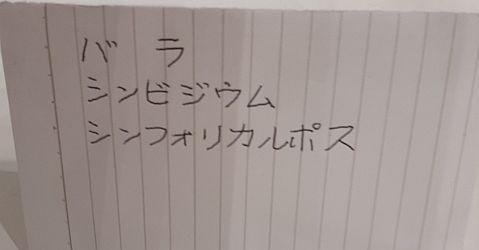 バ ラ
シンビジウム
シンフォリカルポス